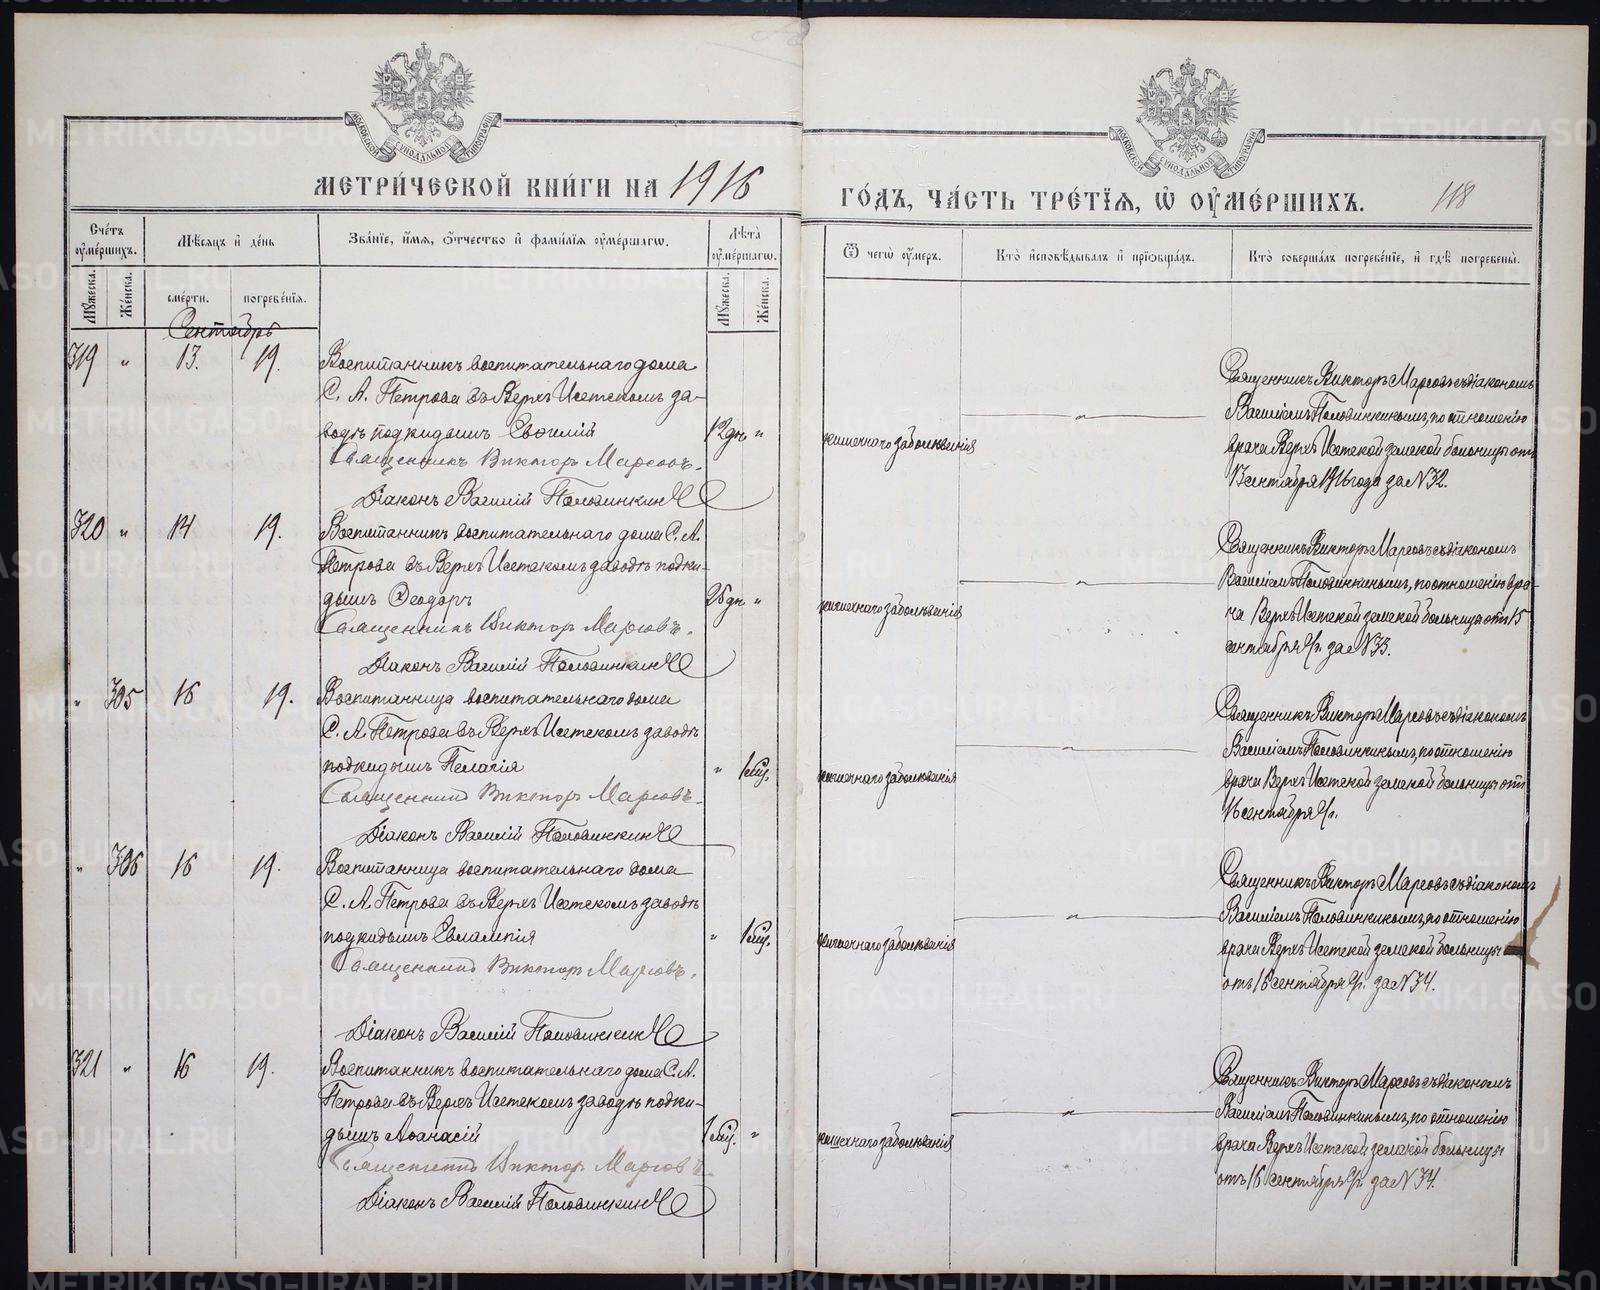 МЕТРИ́ЧЕСКОЙ КНИ́ГИ НА 1916
ГО́ДЪ, ЧА́СТЬ ТРЕ́ТІѦ, Ѡ҆ ОУ҆МЕ́РШИХЪ.
118
Сче́тъ оу҆ме́ршихъ.
Мѣ́сѧцъ и҆ де́нь
Зва́нїе, и҆́мѧ, ѻ҆́тчество и҆ фами́лїѧ оу҆ме́ршагѡ.
Лѣ́та оу҆ме́ршагѡ.
Ѿ чегѡ̀ оу҆́меръ.
Кто̀ и҆сповѣ́дывалъ и҆ прїѡбща́лъ.
Кто̀ соверша́лъ погребе́нїе, и҆ гдѣ̀ погребены̀.
Мꙋ́жеска.
Же́нска.
сме́рти.
погребе́нїѧ.
Мꙋ́жеска.
Же́нска.
Сентябрь
319 " 13. 19.
Воспитанникъ воспитательнаго дома
С. А. Петрова въ Верхъ Исетскомъ за-
водѣ подкидышъ Евгений
12 дн. "
Священникъ Викторъ Марсовъ.
Діаконъ Василій Половинкинъ
кишечнаго заболѣванія
"
Священникъ Викторъ Марсовъ съ діакономъ
Василіемъ Половинкинымъ, по отношенію
врача Верхъ Исетской земской больницы отъ
13 сентября 1916 года за № 32.
320 " 14 19.
Воспитанникъ воспитательнаго дома С. А.
Петрова въ Верхъ Исетскомъ заводѣ подки-
дышъ Ѳеодоръ
25 дн. "
Священникъ Викторъ Марсовъ.
Діаконъ Василій Половинкинъ
кишечнаго заболѣванія
"
Священникъ Викторъ Марсовъ съ діакономъ
Василіемъ Половинкинымъ, по отношенію вра-
ча Верхъ Исетской земской больницы отъ 15
сентября с/г. за № 33.
" 305 16 19.
Воспитанница воспитательнаго дома
С. А. Петрова въ Верхъ Исетскомъ заводѣ
подкидышъ Пелагія
" 1 мѣс.
Священникъ Викторъ Марсовъ.
Діаконъ Василій Половинкинъ
кишечнаго заболѣванія
"
Священникъ Викторъ Марсовъ съ діакономъ
Василіемъ Половинкинымъ, по отношенію
врача Верхъ Исетской земской больницы отъ
16 сентября с/г.
" 306 16 19.
Воспитанница воспитательнаго дома
С. А. Петрова въ Верхъ Исетскомъ заводѣ
подкидышъ Евлампія
" 1 мѣс.
Священникъ Викторъ Марсовъ.
Діаконъ Василій Половинкинъ
кишечнаго заболѣванія
"
Священникъ Викторъ Марсовъ съ діакономъ
Василіемъ Половинкинымъ, по отношенію
врача Верхъ Исетской земской больницы
отъ 16 сентября с/г. за № 34.
321 " 16 19.
Воспитанникъ воспитательнаго дома С. А.
Петрова въ Верхъ Исетскомъ заводѣ подки-
дышъ Аѳанасій
1 мѣс. "
Священникъ Викторъ Марсовъ
Діаконъ Василій Половинкинъ
кишечнаго заболѣванія
"
Священникъ Викторъ Марсовъ съ діакономъ
Василіемъ Половинкинымъ, по отношенію
врача Верхъ Исетской земской больницы
отъ 16 сентября с/г. за № 34.